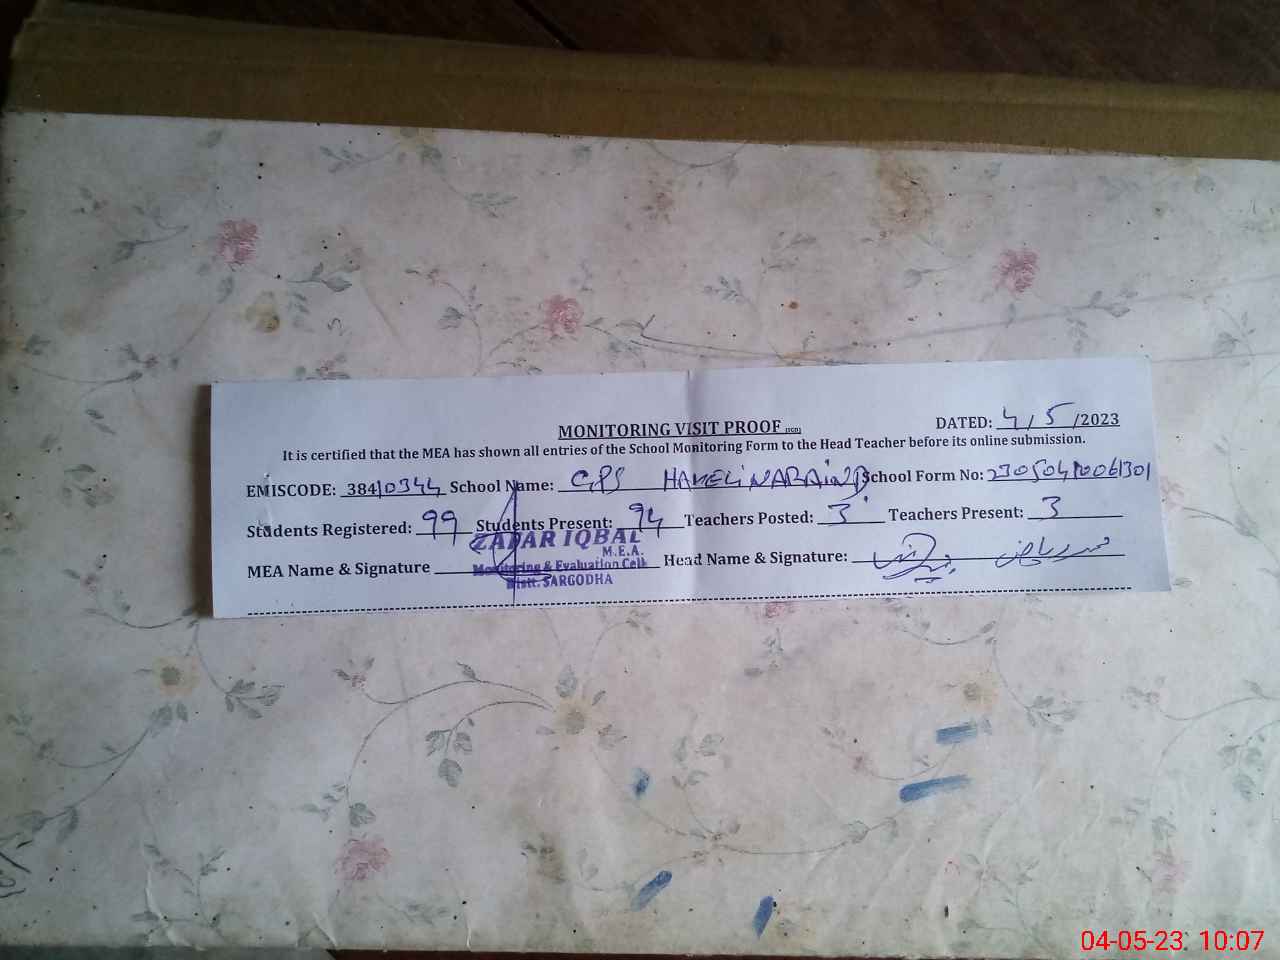 MONITORING VISIT PROOF DATED: 4/5/2023
It is certified that the MEA has shown all entries of the School Monitoring Form to the Head Teacher before its online submission.
EMISCODE: 38410344 School Name: GPS HAVELI NARAIN School Form No:
Students Registered: 99 Students Present: 94 Teachers Posted: 3 Teachers Present: 3
MEA Name & Signature Head Name & Signature:
ZAFAR IQBAL
M.E.A.
Monitoring & Evaluation Cell
Distt. SARGODHA
04-05-23 10:07